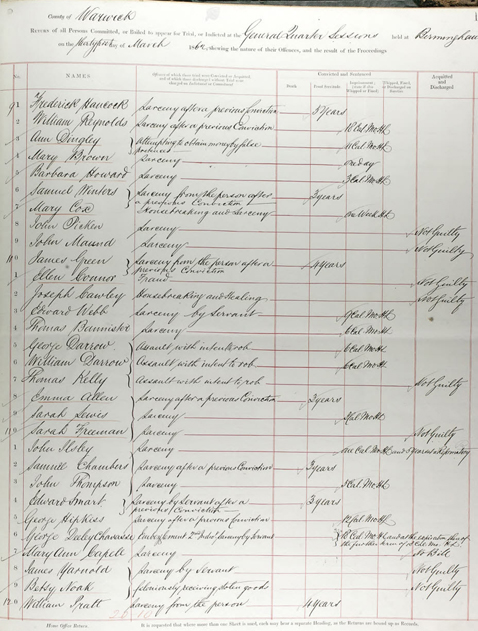 County of Warwick
RETURN of all Persons Committed, or Bailed to appear for Trial, or Indicted at the General Quarter Sessions held at Birmingham
on the day of March 186 , shewing the nature of their Offences, and the result of the Proceedings
No. NAMES Offences of which those tried were Convicted or Acquitted, Convicted and Sentenced Acquitted and Discharged
Death Penal Servitude
Frederick Hancock Larceny after a previous Conviction 5 Years
2 William Reynolds Larceny after a previous Conviction 12 Cal. Mo. H.
3 Ann Dingley Attempting to obtain money by false pretences Cal. Mo. H.
4 Mary Brown Larceny one day
5 Barbara Howard Larceny 3 Cal. Mo. H.
6 Samuel Winters Larceny from the person after a previous Conviction 3 years
7 Mary Cox Housebreaking and Larceny one Week H.
8 John Picken Larceny Not Guilty
9 John Maund Larceny Not Guilty
110 James Green Larceny from the person after a previous Conviction 4 Years
1 Ellen Connor Fraud Not Guilty
2 Joseph Cawley Housebreaking and Stealing Not Guilty
3 Edward Webb Larceny by Servant Cal. Mo. H.
4 Thomas Bannister Larceny 6 Cal. Mo. H.
5 George Darrow Assault with intent to rob 6 Cal. Mo. H.
6 William Darrow Assault with intent to rob 6 Cal. Mo. H.
7 Thomas Kelly Assault with intent to rob Not Guilty
8 Emma Allen Larceny after a previous Conviction 3 years
9 Sarah Lewis Larceny Cal. Mo. H.
Sarah Freeman Larceny Not Guilty
1 John Larceny one Cal. Mo. H. and 5 years Reformatory
2 Samuel Chambers Larceny after a previous Conviction 3 years
3 John Thompson Larceny Cal. Mo. H.
4 Edward Smart Larceny by Servant after a previous Conviction 3 years
5 George Hipkiss Larceny after a previous Conviction 12 Cal. Mo. H.
6 George Larceny by Servant 12 Cal. Mo. H. and at the expiration thereof the further term of Cal. Mo. H.
7 Mary Ann Capell Larceny No Bill
8 James Larceny by Servant Not Guilty
9 Betsy Noak Feloniously receiving stolen goods Not Guilty
William Pratt Larceny from the person 4 Years
Home Office Return. It is requested that where more than one Sheet is used, each may bear a separate Heading, as the Returns are bound up as Records.